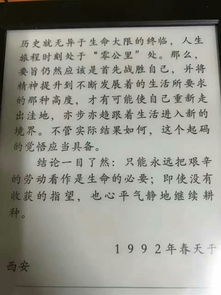 历史就无异于生命大限的终临，人生
旅程时刻处于“零公里”处。那么，
要旨仍然应该是首先战胜自己，并将
精神提升到不断发展着的生活所要求
的那种高度，才有可能使自己重新走
出洼地，亦步亦趋跟着生活进入新的
境界。不管实际结果如何，这个起码
的觉悟应当具备。
结论一目了然：只能永远把艰辛
的劳动看作是生命的必要；即使没有
收获的指望，也心平气静地继续耕
种。
1992年春天于
西安